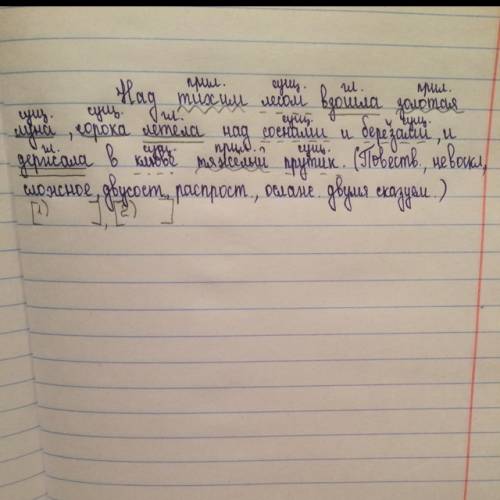 прил. сущ. гл. прил.
Над тихим лесом взошла золотая
сущ. сущ. гл. сущ. сущ.
луна, сорока летела над соснами и берёзами, и
гл. сущ. прил. сущ.
держала в клюве тяжелый прутик. (Повеств., невоскл,
сложное, двусост., распрост., ослож. двумя сказуем.)
[1) ], [2) ]